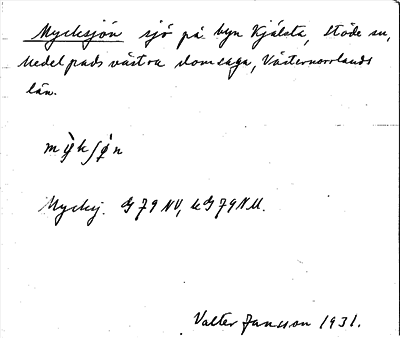 Mycksjön sjö på byn Kjälsta, Stöde sn,
Medelpads västra domsaga, Västernorrlands
län.
mỳkʃø̀n
Mycksj. G79NV, kG79NV.
Valter Jansson 1931.